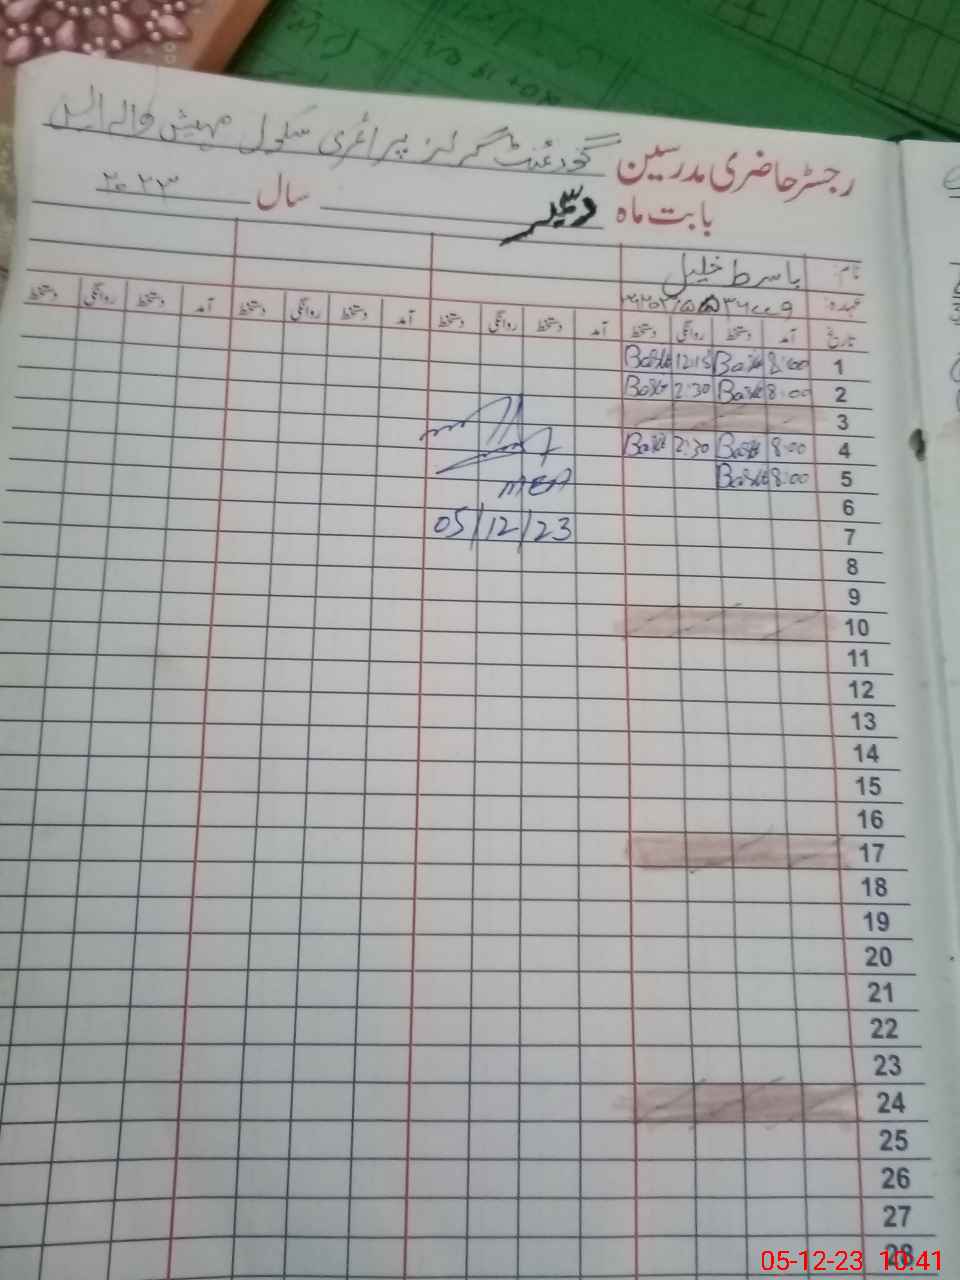 رجسٹر حاضری مدرسین گورنمنٹ گرلز پرائمری سکول مہیش والہ
بابت ماہ دسمبر سال ۲۰۲۳
نام: باسط خلیل
عہدہ:
تاریخ آمد دستخط روانگی دستخط آمد دستخط روانگی دستخط آمد دستخط روانگی دستخط آمد دستخط روانگی دستخط
1 8:00 Basit 12:15 Basit
2 8:00 Basit 2:30 Basit
3
4 8:00 Basit 2:30 Basit
5 8:00 Basit
MEA
6
05/12/23
7
8
9
10
11
12
13
14
15
16
17
18
19
20
21
22
23
24
25
26
27
28
05-12-23 10:41